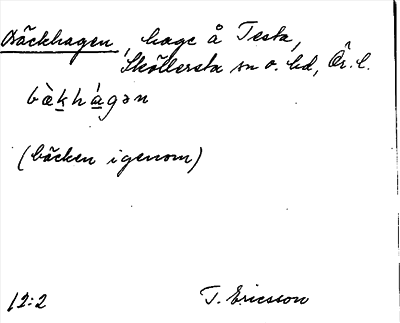 Bäckhagen, hage å Testa,
Sköllersta sn o. hd, Ör. l.
bæ̀khágən
(bäcken igenom)
12:2 T. Ericsson